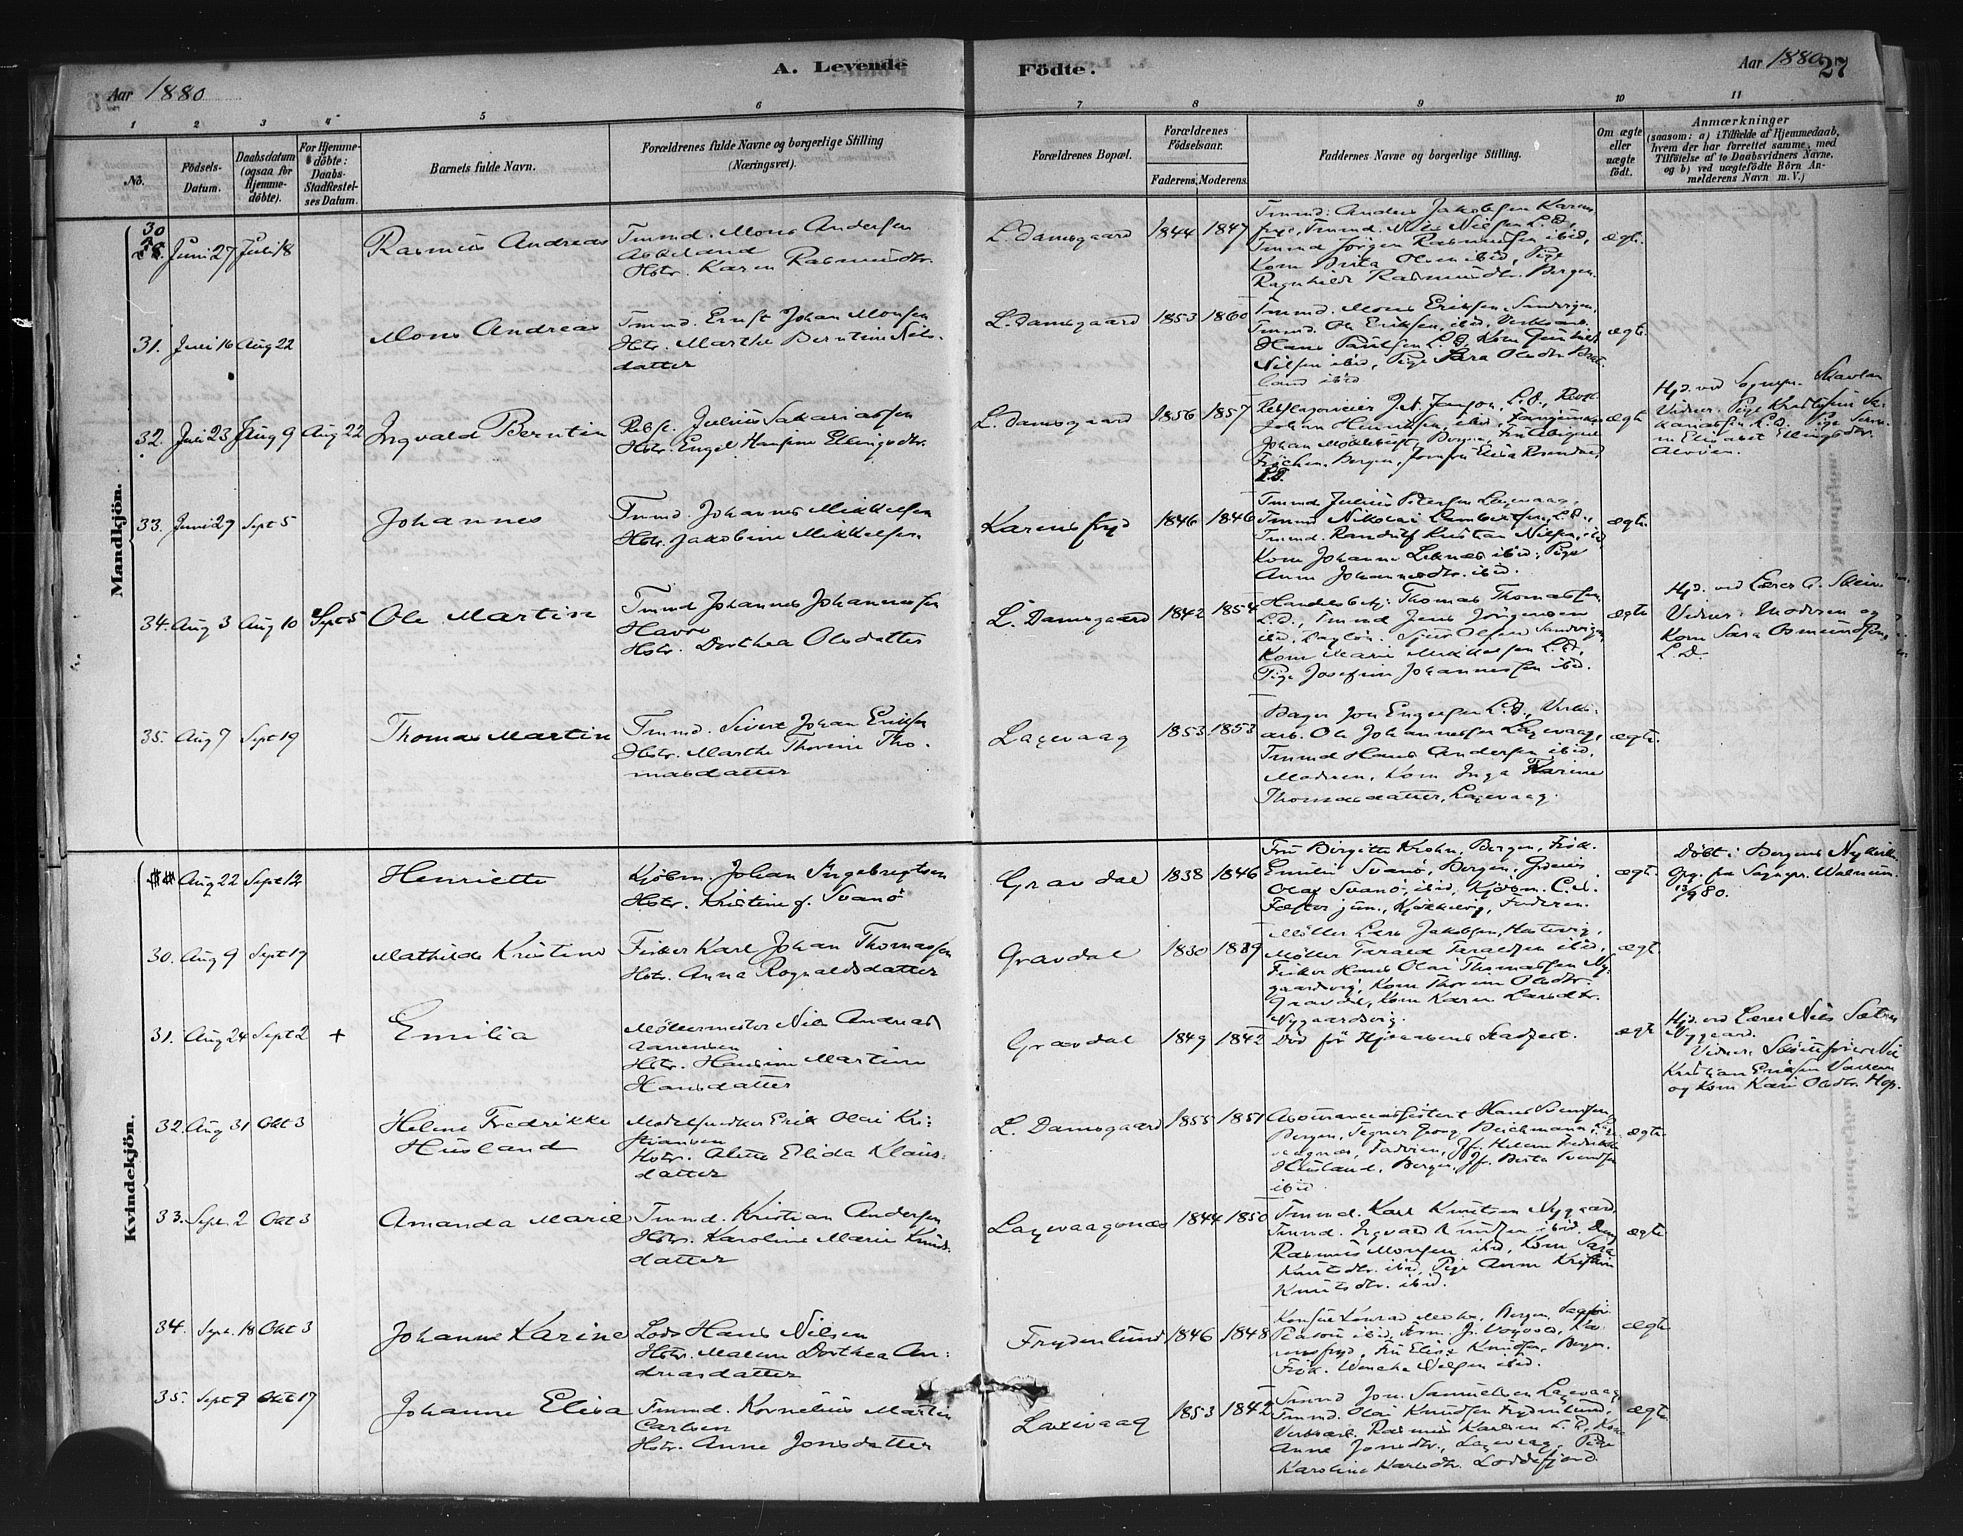 A. Levende Födte.
Aar 1880
Aar 1880 27
1 2 3 4 5 6 7 8 9 10 11
No.
Födsels-Datum.
Daabsdatum (ogsaa for Hjemme-döbte).
For Hjemme-döbte: Daabs-Stadfestel-ses Datum.
Barnets fulde Navn.
Forældrenes fulde Navne og borgerlige Stilling
(Næringsvei).
Forældrenes Bopæl.
Forældrenes Födselsaar.
Faderens. Moderens.
Faddernes Navne og borgerlige Stilling.
Om ægte eller uægte födt.
Anmærkninger
(saasom: a) i Tilfælde af Hjemmedaab,
hvem der har forrettet samme, med
Tilföielse af to Daabsvidners Navne,
og b) ved uægtefödte Börn An-
melderens Navn m. V.)
Mandkjön.
30 Juni 27 Juli 18 Rasmus Andreas
Tmmd. Mons Andersen
Askeland
Hstr. Karen Rasmusdtr.
L. Damsgaard 1844 1847
Tmmd: Anders Jakobsen Karens
fryd, Tmmd. Nils Nilsen L.D.,
Tmmd Jörgen Rasmussen ibid,
Kone Brita Olsen ibid, Pige
Ragnhilde Rasmusdtr. Bergen.
ægte
31. Juli 16 Aug 22 Mons Andreas
Tmmd. Ernst Johan Monsen
Hstr. Marthe Berntine Nils-
datter
L. Damsgaard 1853 1860
Tmmd. Mons Eriksen, Sandvigen,
Tmmd. Ole Eriksen, ibid, Verksarb.
Hans Paulsen L.D., Kone Gunhild
Nilsen ibid, Pige Sara Olsdtr
ibid
ægte
32. Juli 23 Aug 9 Aug 22 Ingvald Berntin
Rebsl. Julius Sakariassen
Hstr. Engel Hansine Ellingsdtr.
L. Damsgaard 1856 1857
Jansen, L.D.,
Johan Henriksen, ibid,
Johan Bergen, Fru
Bergen, Jomfru Elisa Rosendal,
L.D.
ægte
Hjd. ved Sognepr. Skavlan
Vidner: Pige
L.D. Pige
Elisabet Ellingsdtr.
Alvöen.
33. Juni 29 Sept 5 Johannes
Tmmd. Johannes Mikkelsen
Hstr. Jakobine Mikkelsen
Karensfryd 1846 1846
Tmmd Julius Petersen Laxevaag,
Tmmd Nikolai Lambertsen, L.D.,
Tmmd. Randulf Kristian Nilsen, ibid,
Kone Johanne Leknes ibid, Pige
Anna Johannesdtr. ibid.
ægte
34. Aug 3 Aug 10 Sept 5 Ole Martin
Tmmd Johannes Johannessen
Havre
Hstr. Dorthea Olsdatter
L. Damsgaard 1842 1854
Handelsbetj. Thomas Thomassen
L.D., Tmmd Jens Jörgensen
ibid, Sjur Olsen Sandvigen,
Kone Marie Mikkelsen L.D.,
Pige Josefine Johannessen ibid.
ægte
Hjd. ved Lærer A. Skeie
Vidner: Moderen og
Kone Sara Osmundsen,
L.D.
35. Aug 7 Sept 19 Thomas Martin
Tmmd. Sivert Johan Eriksen
Hstr. Marthe Thorine Tho-
masdatter
Laxevaag 1853 1853
Bager Jon Engesen L.D., Verks-
arb. Ole Johannessen Laxevaag,
Tmmd Hans Andersen ibid,
Moderen, Kone Inga Karine
Thomasdatter, Laxevaag.
ægte.
Kvindekjön.
Aug 22 Sept 12 Henriette
Kjöbm. Johan Ingebrigtsen
Hstr. Kristine f. Svanö
Gravdal 1838 1846
Fru Birgitte Krohn, Bergen, Frök.
Emilie Svanö, Bergen,
Olaf Svanö, ibid, Kjöbm. C.
jun., Faderen.
ægte.
Döbt i Bergens Nykirke
Opg. fra Sognepr. Walnum
13/9 80.
30. Aug 9 Sept 19 Mathilde Kristine
Fisker Karl Johan Thomassen
Hstr. Anna Rognaldsdatter
Gravdal 1830 1839
Möller Lars Jakobsen,
Möller Tarald Taraldsen ibid,
Fisker Hans Olai Thomassen Ny-
gaardsvig, Kone Thorine Olsdtr.
Gravdal, Kone Karen Larsdtr.
Nygaardsvig.
ægte.
31. Aug 24 Sept 2 + Emilia
Möllermester Nils Andreas
Aanensen
Hstr. Hansine Martine
Hansdatter
Gravdal 1849 1842
Död för Hjdaabens Stadfest.
ægte
Hjd. ved Lærer Nils Sætre
Nyggaard.
Vidner:
Kristian Eriksen
og Kone Kari Olsdtr. Hop.
32. Aug 31 Okt 3 Helene Fredrikke
Husland
Modelsnedker Erik Olai Kri-
stiansen
Hstr. Alette Elida Klaus-
datter
L. Damsgaard 1855 1851
Assuranceassistent Hans Svendsen,
Bergen, Tegner Georg Beichmann,
Faderen, Jfr. Helene Fredrikke
Husland, Bergen, Jfr. Berta Svendsen
ibid.
ægte
33. Sept. 2 Okt 3 Amanda Marie
Tmmd. Kristian Andersen
Hstr. Karoline Marie Knuds-
datter
Laxevaagsnes 1844 1850
Tmmd. Karl Knutsen Nygaard,
Tmmd. Ingvald Knudsen ibid,
Rasmus Monsen ibid, Kone Sara
Knutsdtr. ibid, Pige Anna Kristine
Knutsdtr. ibid.
ægte
34. Sept. 18 Okt 3 Johanne Karine
Lods Hans Nilsen
Hstr. Malene Dorthea An-
dreasdatter
Frydenlund 1846 1848
Konsul Konrad Mohr, Bergen,
ibid,
Fru Elise Knudsen, Bergen.
Frök. Wenche Nilsen ibid.
ægte
35. Sept 9 Okt 17 Johanne Elisa
Tmmd. Kornelius Martin
Carlsen
Hstr. Anne Jonsdatter
Laxevaag 1853 1842
Tmmd Jon Samuelsen Laxevaag
Tmmd. Olai Knudsen Frydenlund,
Verksarb. Rasmus Karlsen L.D., Kone
Anne Jonsdtr., Laxevaag, Pige
Karoline Karlsdtr. Loddefjord.
ægte